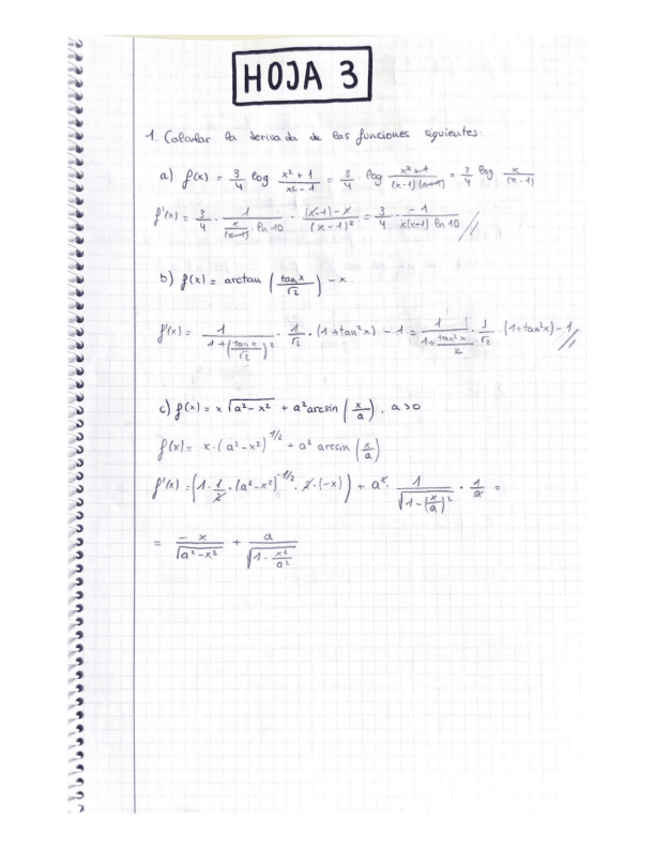 HOJA 3
1. Calcular la derivada de las funciones siguientes:
a) f(x) = 3/4 log (x²+1)/(x²-1) = 3/4 · log (x²+1)/((x-1)(x+1)) = 3/4 log x/(x-1)
f'(x) = 3/4 · 1/(x/(x-1) · ln 10) · ((x-1)-x)/(x-1)² = 3/4 · -1/(x(x-1) ln 10) //
b) f(x) = arctan (tan x/√2) - x.
f'(x) = 1/(1+(tan x/√2)²) · 1/√2 · (1+tan²x) - 1 = 1/(1+tan²x/2) · 1/√2 · (1+tan²x) - 1 //
c) f(x) = x √(a²-x²) + a² arcsin (x/a), a>0
f(x) = x · (a²-x²)^1/2 + a² arcsin (x/a)
f'(x) = (1 · 1/2 · (a²-x²)^-1/2 · 2 · (-x)) + a² · 1/√(1-(x/a)²) · 1/a =
= -x/√(a²-x²) + a/√(1-x²/a²)